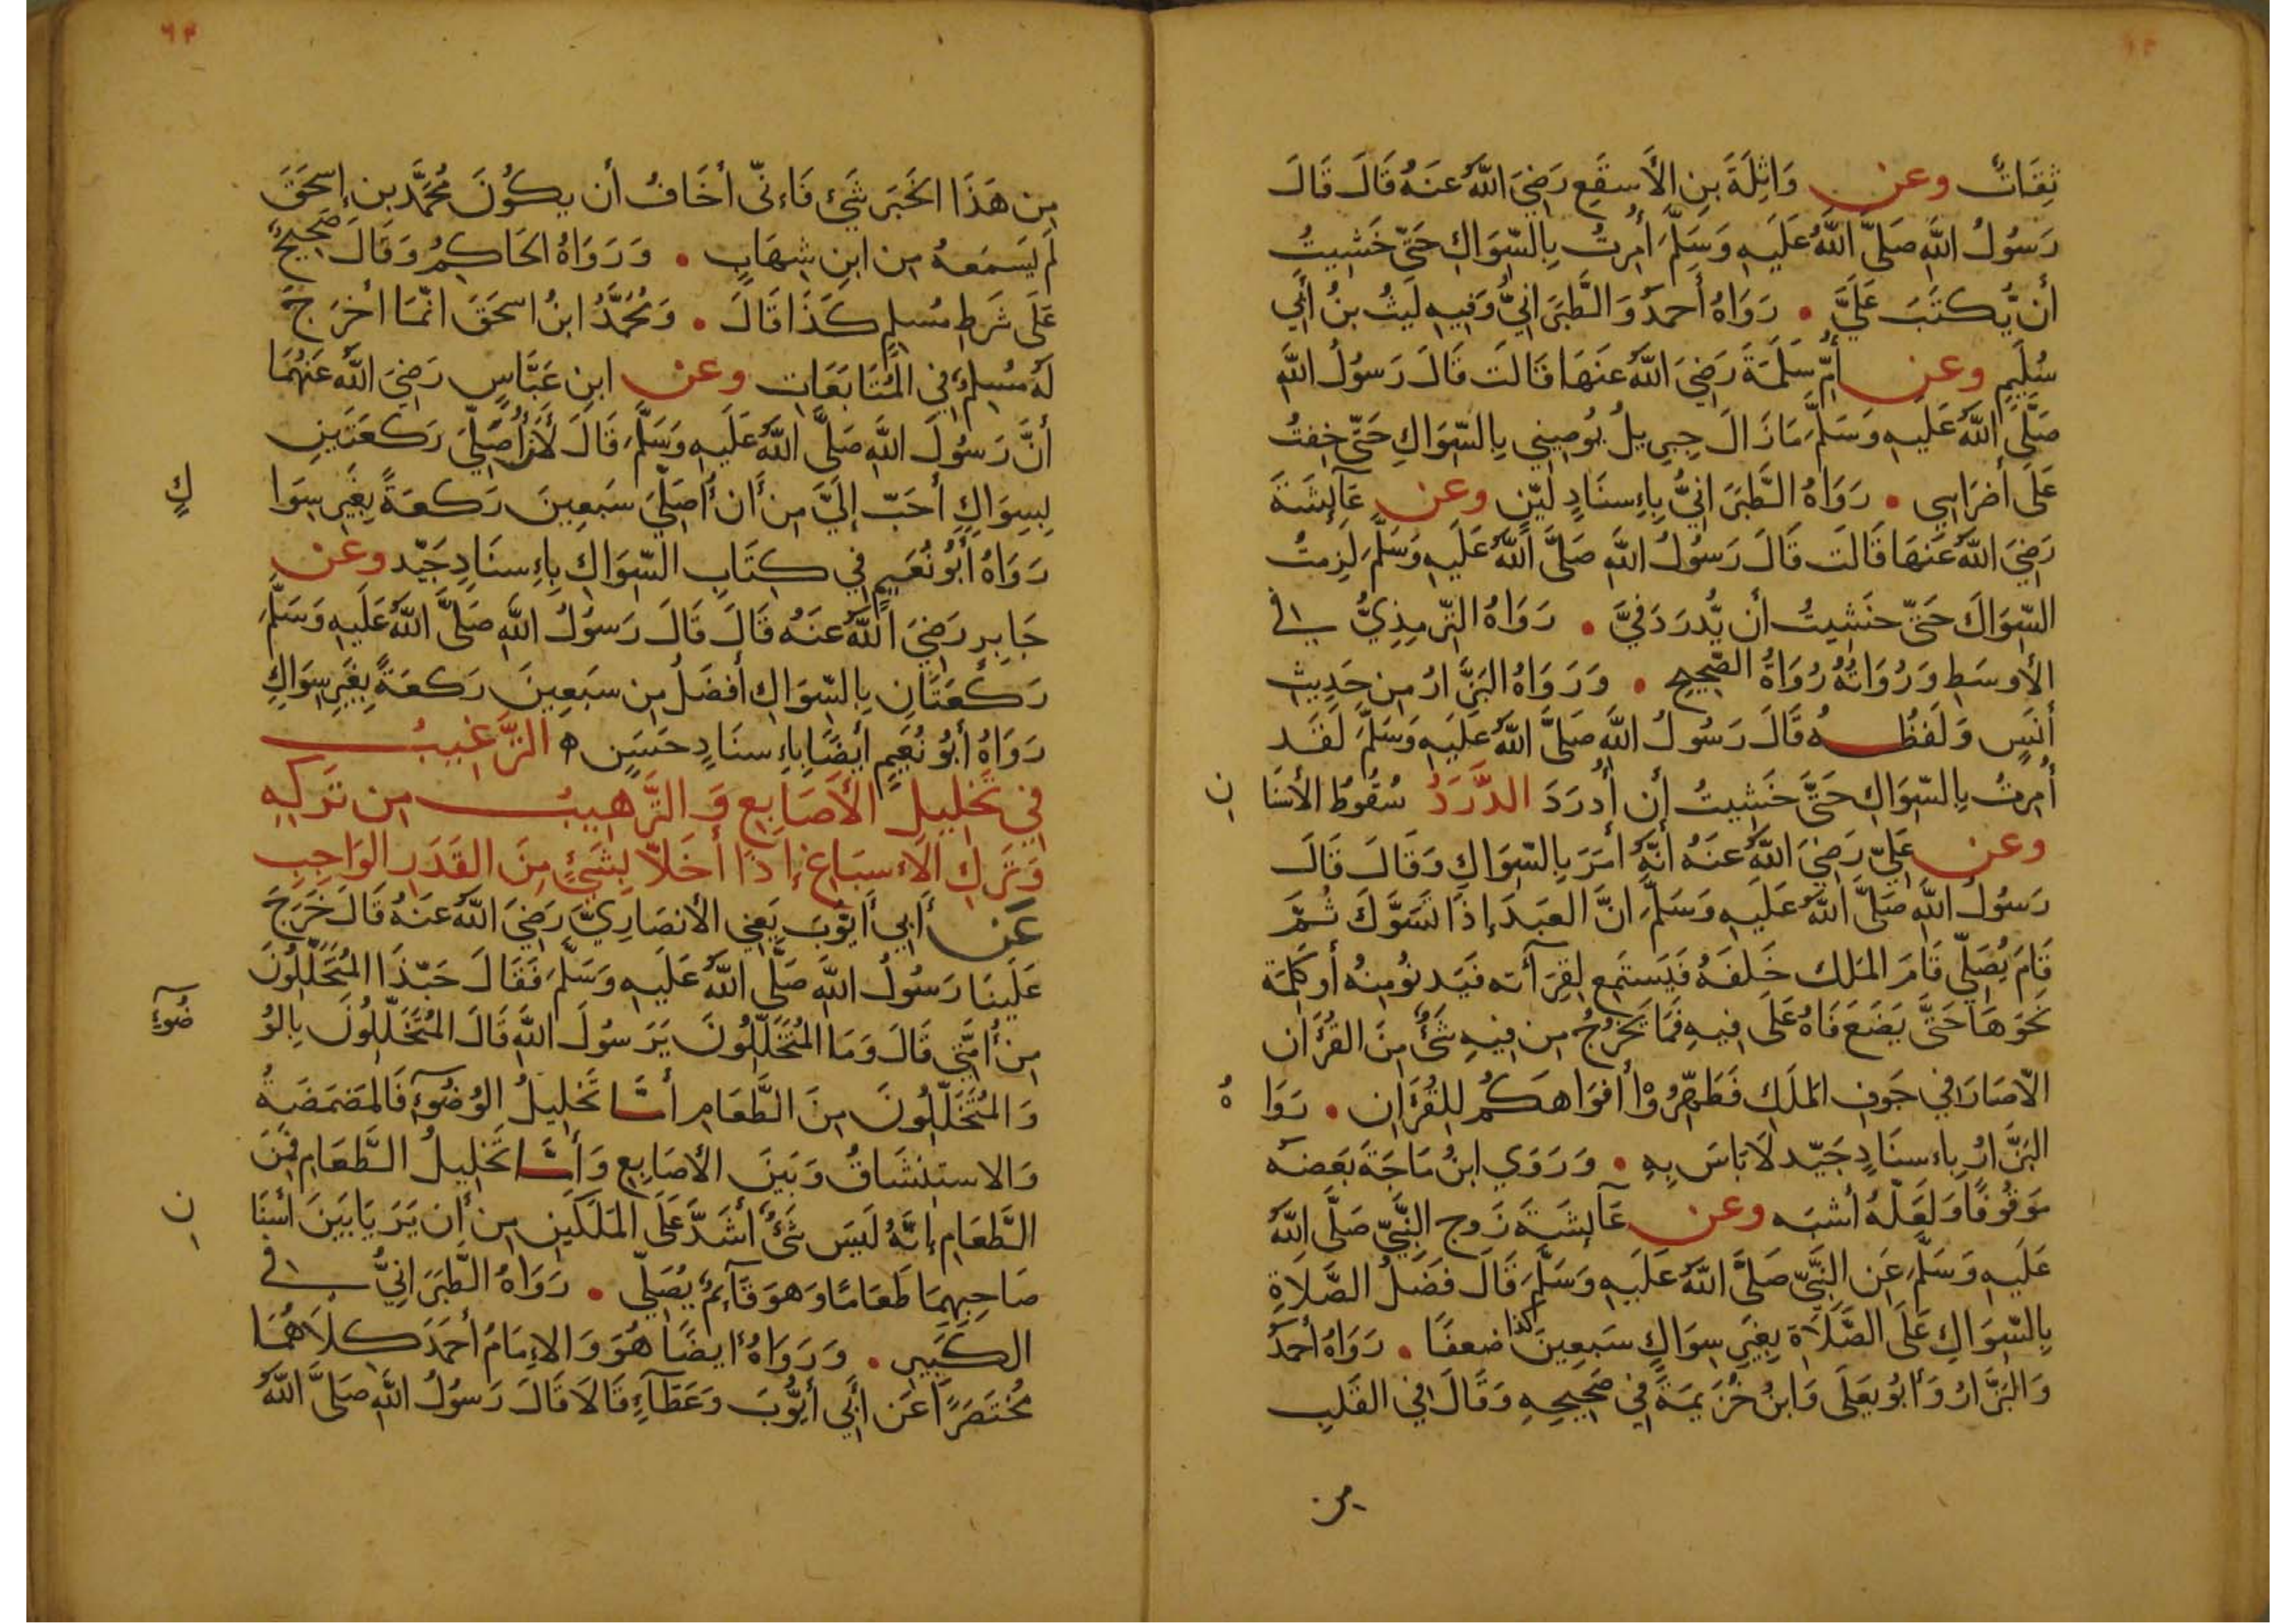 ثِقَاتٌ وعن وَاثِلَةَ بنِ الأَسقَعِ رَضِيَ اللّهُ عَنهُ قَالَ قَالَ
رَسُولُ اللّهِ صَلَّى اللّهُ عَلَيهِ وَسَلَّمَ أُمِرتُ بِالسِّوَاكِ حَتّى خَشِيتُ
أَن يُكتَبَ عَلَيَّ • رَوَاهُ أَحمدُ وَالطَّبَرَانِيُّ وَفِيهِ لَيثُ بنُ أَبِي
سُلَيمٍ وعن أُمِّ سَلَمَةَ رَضِيَ اللّهُ عَنهَا قَالَت قَالَ رَسُولُ اللّهِ
صَلَّى اللّهُ عَلَيهِ وَسَلَّمَ مَا زَالَ جِبرِيلُ يُوصِينِي بِالسِّوَاكِ حَتّى خِفتُ
عَلَى أَضرَاسِي • رَوَاهُ الطَّبَرَانِيُّ بِإِسنَادٍ لَيّنٍ وعن عَآئِشَةَ
رَضِيَ اللّهُ عَنهَا قَالَت قَالَ رَسُولُ اللّهِ صَلَّى اللّهُ عَلَيهِ وَسَلَّمَ لَزِمتُ
السِّوَاكَ حَتّى خَشِيتُ أَن يُّدرَدَ فِيَّ • رَوَاهُ التِّرمِذِيُّ في
الأَوسَطِ وَرُوَاتُهُ رُوَاةُ الصَّحِيحِ • وَرَوَاهُ البَزَّارُ مِن حَدِيثِ
أَنَسٍ وَلَفظُهُ قَالَ رَسُولُ اللّهِ صَلَّى اللّهُ عَلَيهِ وَسَلَّمَ لَقَد
أُمِرتُ بِالسِّوَاكِ حَتَّى خَشِيتُ أَن أُدرَدَ الدَّرَدُ سُقُوطُ الأَسنَان
وعن عَلِيّ رَضِيَ اللّهُ عَنهُ أَنَّهُ أَمَرَ بِالسِّوَاكِ وَقَالَ قَالَ
رَسُولُ اللّهِ صَلَّى اللّهُ عَلَيهِ وَسَلَّمَ انَّ العَبدَ إِذَا تَسَوَّكَ ثُمَّ
قَامَ يُصَلِّي قَامَ المَلك خَلفَهُ فَيَستَمِع لِقِرَآءته فَيَدنُو مِنهُ أَو كَلِمَة
نَحوَهَا حَتَّى يَضَعَ فَاهُ عَلَى فِيهِ فَمَا يَخرُجُ مِن فِيهِ شَيٌ مِنَ القُرآن
الّا صَارَ في جَوفِ المَلَكِ فَطَهِّرُوْا أَفوَاهَكُم لِلقُرآنِ • رَوَاهُ
البَزَّارُ بِإِسنَادٍ جَيّد لَا بَاسَ بِهِ • وَرَوَي ابنُ مَاجَةَ بَعضَهُ
مَوقُوفًا وَلَعَلّهُ أَشبَه وعن عَآئِشَةَ زَوجِ النَّبِيّ صَلَّى اللّهُ
عَلَيهِ وَسَلَّمَ عَنِ النَّبِيّ صَلَّى اللّهُ عَلَيهِ وَسَلَّمَ قَالَ فَضلُ الصَّلَاةِ
بِالسِّوَاكِ عَلَى الصَّلَاةِ بِغَيرِ سِوَاكٍ سَبعِينَ كذا ضعفًا • رَوَاهُ أَحمَدُ
وَالبَزَّارُ وَأَبُو يَعلَى وَابنُ خُزَيمَةَ في صَحِيحِهِ وَقَالَ في القَلبِ
من
٦٣
مِن هَذَا الخَبَرِ شَيٌ فَاِنّي أَخَافُ أَن يكُونَ مُحَمَّد بن إِسحَقَ
لَم يَسمَعهُ مِن ابنِ شِهَابٍ • وَرَوَاهُ الحَاكِمُ وَقَالَ صَحِيحٌ
عَلَى شَرطِ مُسلِمٍ كَذَا قَالَ • وَمُحَمَّدُ ابنُ اسحَقَ انّمَا أَخرَجَ
لَهُ مُسلِمٌ فِي المُتَابَعَاتِ وعن ابنِ عَبَّاسٍ رَضِيَ اللّهُ عَنهُمَا
أَنَّ رَسُولَ اللّهِ صَلَّى اللّهُ عَلَيهِ وَسَلَّمَ قَالَ لَأَن أُصَلّيَ رَكعَتَينِ
بِسِوَاكٍ أَحَبّ إِلَيَّ مِن أَن أُصَلّيَ سَبعِينَ رَكعَةً بِغَيرِ سِوَاكٍ
رَوَاهُ أَبُو نُعَيمٍ فِي كِتَابِ السِّوَاكِ بِاِسنَادٍ جَيّد وعن
جَابِرٍ رَضِيَ اللّهُ عَنهُ قَالَ قَالَ رَسُولُ اللّهِ صَلَّى اللّهُ عَلَيهِ وَسَلَّمَ
رَكعَتَانِ بِالسِّوَاكِ أَفضَلُ مِن سَبعِينَ رَكعَةً بِغَيرِ سِوَاكٍ
رَوَاهُ أَبُو نُعَيمٍ أَيضًا بِاِسنَادٍ حَسَنٍ ه التَّرغِيبُ
فِي تَخلِيلِ الأَصَابِعِ وَ التَّرهِيبُ مِن تَركِهِ
وَتَركِ الاِسبَاغِ إِذَا أَخَلَّا بِشَيٍ مِنَ القَدَرِ الوَاجِبِ
عَن أَبِي أَيُّوبَ يَعنِي الأَنصَارِيَّ رَضِيَ اللّهُ عَنهُ قَالَ خَرَجَ
عَلَينَا رَسُولُ اللّهِ صَلَّى اللّهُ عَلَيهِ وَسَلَّمَ فَقَالَ حَبّذَا المُتَخَلِّلُونَ
مِن أُمَّتِي قَالَ وَمَا المُتَخَلِّلُونَ يَرَسُولَ اللّهِ قَالَ المُتَخَلِّلُونَ بِالوُضُوءِ
وَالمُتَخَلِّلُونَ مِنَ الطَّعَامِ أَمَّا تَخلِيلُ الوُضُوٓءِ فَالمَضمَضَةُ
وَالاستِنشَاقُ وَبَينَ الأَصَابِعِ وَأَمَّا تَخلِيلُ الطَّعَامِ فَمِنَ
الطَّعَامِ إِنَّهُ لَيسَ شَيٌ أَشَدَّ عَلَى المَلَكَينِ مِن أَن يَرَيَا بَينَ أَسنَان
صَاحِبِهِمَا طَعَامًا وَهوَ قَآئِمٌ يُصَلِّي • رَوَاهُ الطَّبَرَانِيُّ في
الكَبِيرِ • وَرَوَاهُ أيضًا هُوَ وَالإِمَامُ أَحمَدَ كِلَاهُمَا
مُختَصَرًا عَن أَبِي أَيُّوبَ وَعَطَآءٍ قَالَا قَالَ رَسُولُ اللّهِ صَلَّى اللّهُ